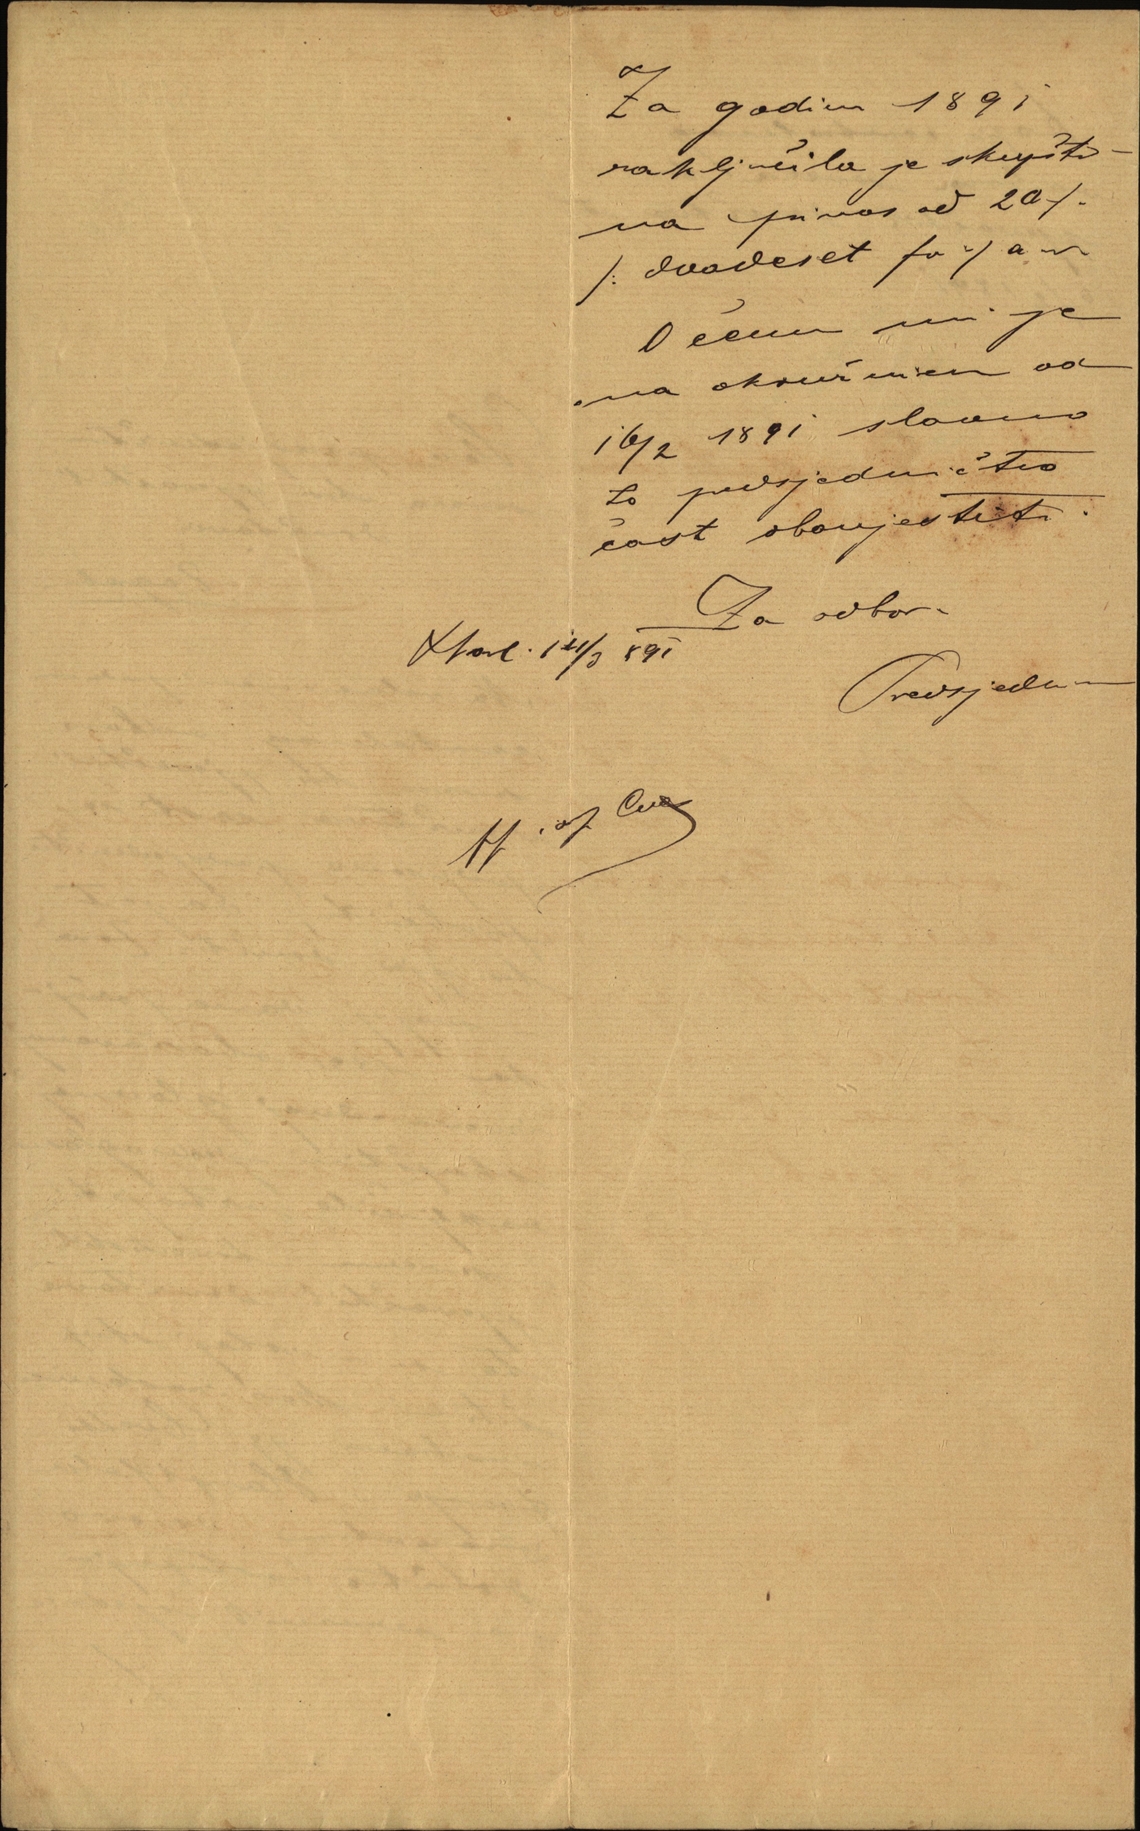 Za godinu 1891
zaključila je skupšti-
na prinos od 20 f.
/: dvadeset for :/ a v
O čemu mi je
na okružnicu od
16/2 1891 slavno
to predsjedništvo
čast obavjestiti.
Za odbor.
14/3 891
Predsjednik